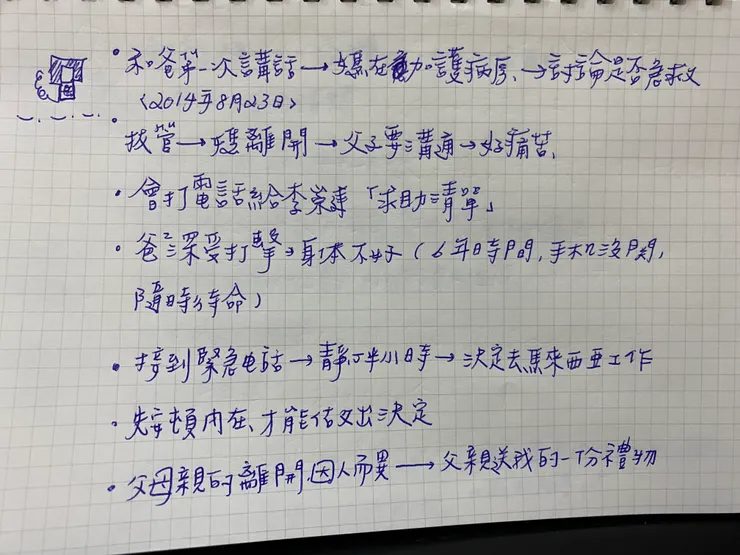 • 和爸第一次講話→媽在加護病房、→討論是否急救
(2014年8月23日)
• 拔管→媽離開→父子要溝通→好痛苦、
• 會打電話給李崇建「求助清單」
• 爸爸深受打擊→身体不好(6年時間,手机沒関,
隨時待命)
• 接到緊急电話→靜心半小時→決定去馬來西亞工作
• 先安頓內在、才能做出決定
• 父母親的離開,因人而異→父親送我的一份禮物